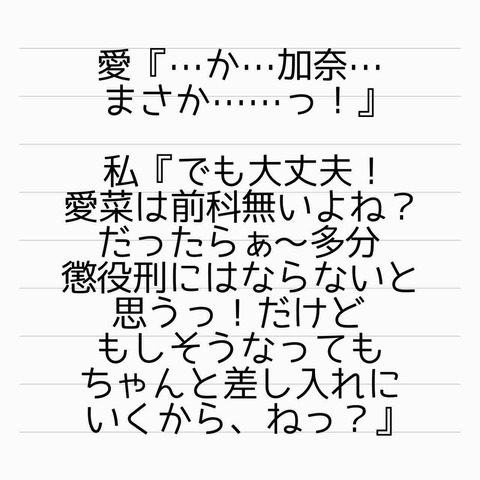 愛『…か…加奈…
まさか……っ！』
私『でも大丈夫！
愛菜は前科無いよね？
だったらぁ〜多分
懲役刑にはならないと
思うっ！だけど
もしそうなっても
ちゃんと差し入れに
いくから、ねっ？』